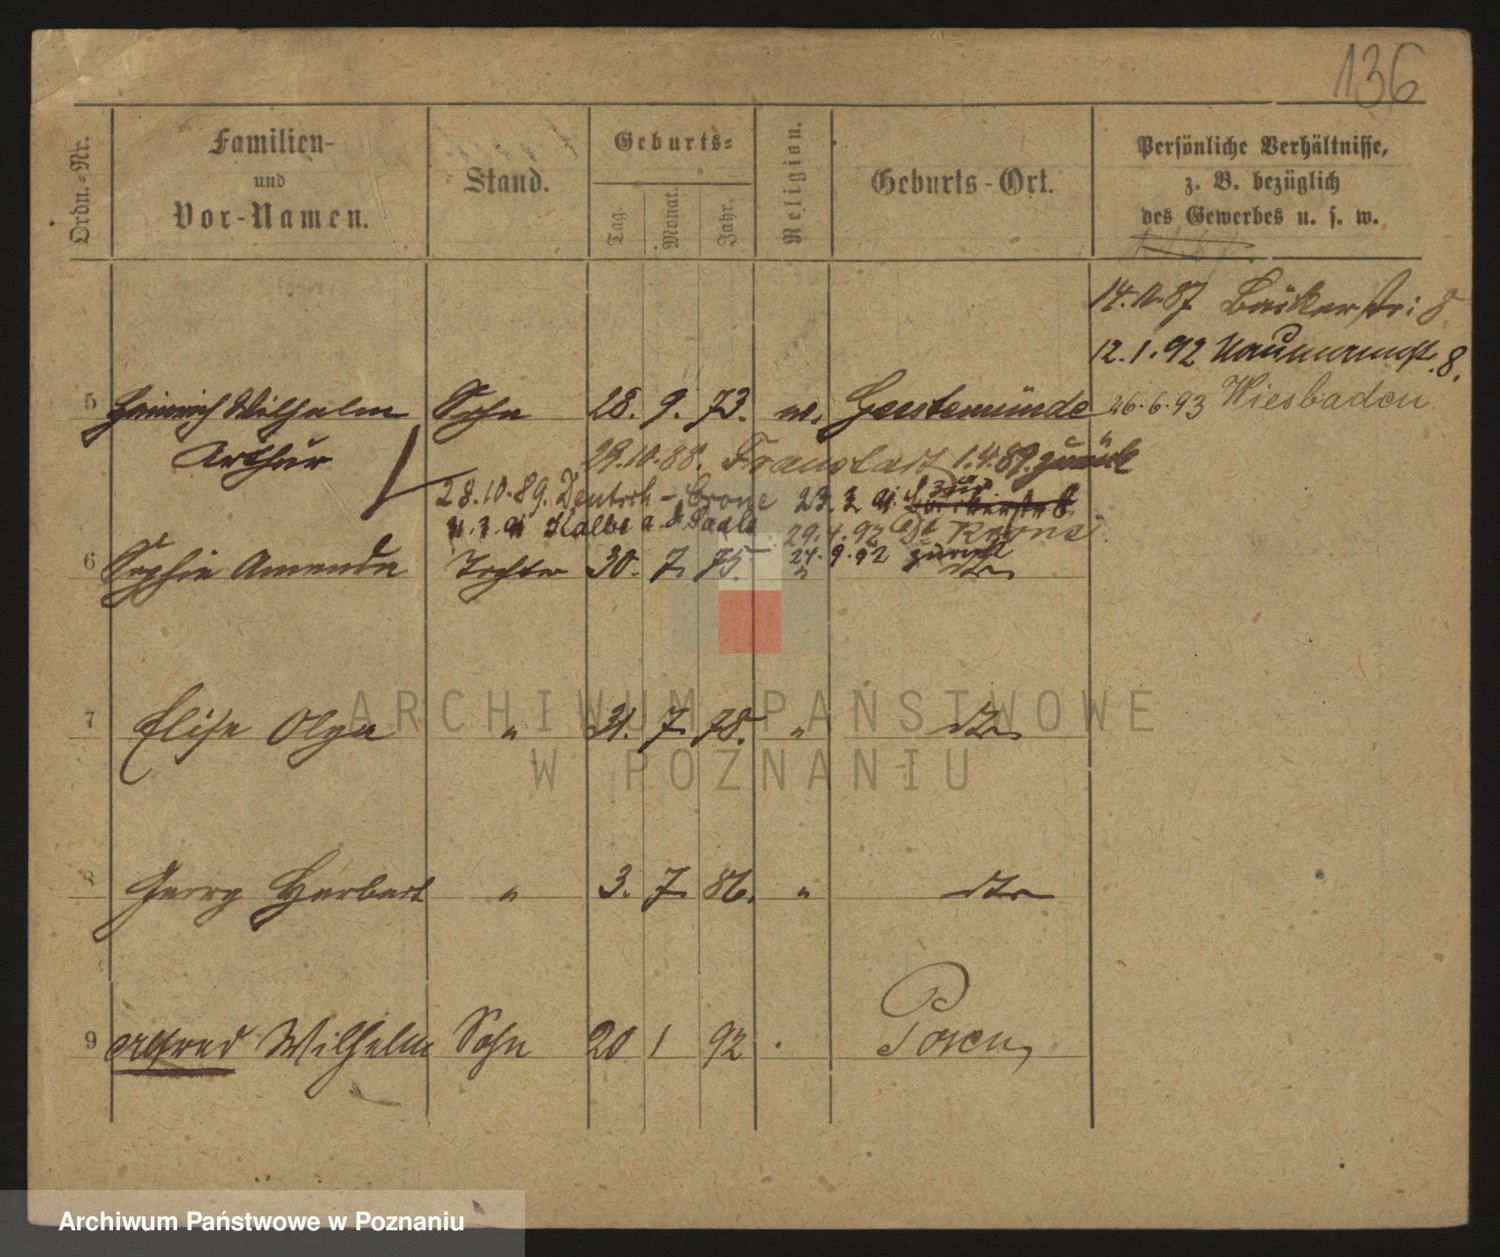 136
Ordn.-Nr.
Familien-
und
Vor-Namen.
Stand.
Geburts-
Tag.
Monat.
Jahr.
Religion.
Geburts-Ort.
Persönliche Verhältnisse,
z. B. bezüglich
des Gewerbes u. s. w.
14.10.87 Bäckerstr: 8
12.1.92 Naumannstr. 8.
5 Heinrich Wilhelm Sohn 28. 9. 73. ev. Geestemünde 26.6.93 Wiesbaden
Arthur
29.10.88. Fraustadt 1.4.89. zurück
28.10.89. Deutsch-Crone 23.3.91 Bäckerstr 8
Kalbe a. d. Saale
29.4.92 Dt Krone
24.9.92 zurück
6 Sophie Amanda Tochter 30. 7. 75. " dto
7 Elise Olga " 31. 7. 78. " dto
8 Georg Herbert " 3. 7. 86. " dto
9 Alfred Wilhelm Sohn 20 1 92 . Posen
ARCHIWUM PAŃSTWOWE
W POZNANIU
Archiwum Państwowe w Poznaniu